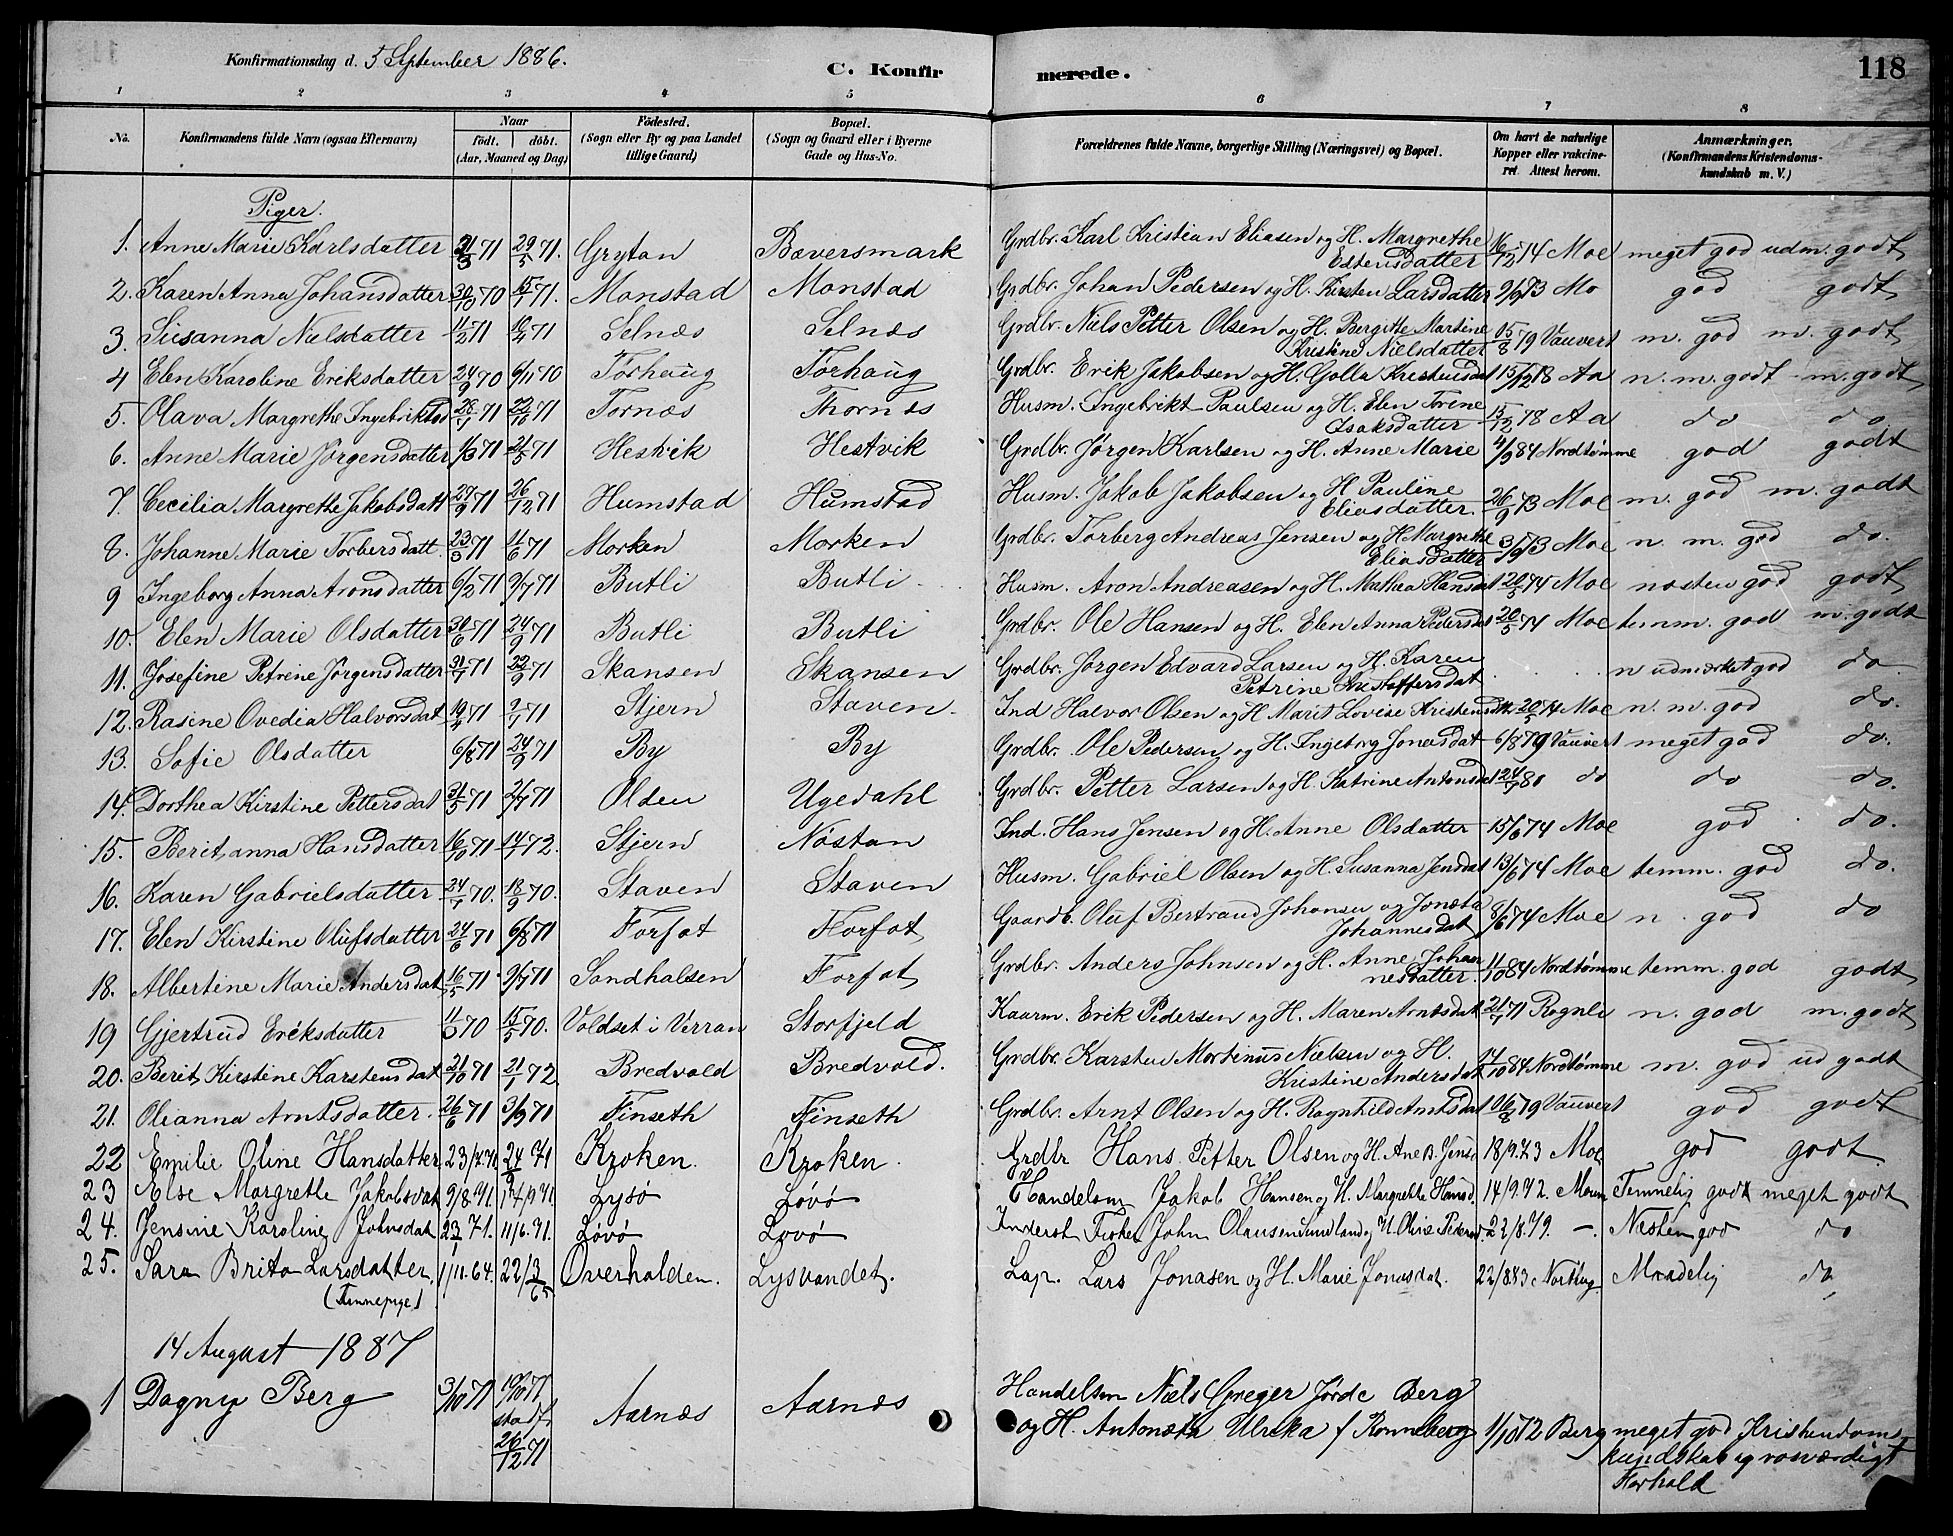 118
Konfirmationsdag d. 5 September 1886.
C. Konfirmerede.
1 2 3 4 5 6 7 8
No.
Konfirmandens fulde Navn (ogsaa Efternavn)
Naar
født. døbt.
(Aar, Maaned og Dag)
Fødested.
(Sogn eller By og paa Landet
tillige Gaard)
Bopæl.
(Sogn og Gaard eller i Byerne
Gade og Hus-No.
Forældrenes fulde Navne, borgerlige Stilling (Næringsvei) og Bopæl.
Om havt de naturlige
Kopper eller vakcine-
ret. Attest herom.
Anmærkninger.
(Konfirmandens Kristendoms-
kundskab m. V.)
Piger.
1. Anne Marie Karlsdatter 21/3 71 29/5 71. Grytan Bæversmark Grdbr. Karl Kristian Eliasen og H. Margrethe Estensdatter 16/12 74 Moe meget god udm. godt
2. Karen Anna Johansdatter 30/10 70 15/1 71. Monstad Monstad Grdbr. Johan Pedersen og H. Kirsten Larsdatter 9/6 73 Mo god godt
3. Susanna Nielsdatter 11/2 71 10/4 71 Selnæs Selnæs Grdbr. Niels Petter Olsen og H. Bergitte Martine Kristine Nielsdatter 15/8 79 Vauvert m. god m. godt
4 Elen Karoline Eriksdatter 24/9 70 6/11 70 Torhaug Torhaug Grdbr. Erik Jakobsen og H. Golla 15/12 78 Aa n. m. godt m. godt
5. Olava Margrethe 26/1 71 71 Tornæs Thornæs Husm. Ingebrikt Paulsen og H. Elen Trene Isaksdatter 15/12 78 Aa do do
6. Anne Marie Jørgensdatter 1/3 71 21/5 71 Hestvik Hestvik Grdbr. Jørgen Karlsen og H. Anne Marie 4/9 84 Nordtømme god godt
7. Cecilia Margrethe Jakobsdatt 27/9 71 26/12 71 Humstad Humstad Husm. Jakob Jakobsen og H. Pauline Eliasdatter. 26/9 73 Moe m. god m. godt
8. Johanne Marie Torbersdatt. 23/3 71 11/6 71 Morken Morken Grdbr. Torberg Andreas Jensen og H. Margrethe Eliasdatter 3/9 73 Moe n. m. god do.
9 Ingeborg Anna Aronsdatter 6/2 71 9/7 71 Butli Butli Husm. Aron Andreasen og H. Mathea Hansdat 20/5 74 Moe næsten god godt
10. Elen Marie Olsdatter 30/6 71 24/9 71 Butli Butli Grdbr. Ole Hansen og H. Elen Anna Pedersdat 20/5 74 Moe temm. god m. godt
11. Josefine Petrine Jørgensdatter 71 71 Skansen Skansen Grdbr. Jørgen Edvard Larsen og H. Karen Petrine Kristoffersdat n udmærket god do
12. Rasine Ovedia Halvorsdat 19/4 71 71 Stjern Staven Ind Halvor Olsen og H Marit Lovise 20/5 74 Moe n. m. god do.
13. Sofie Olsdatter 6/8 71 24/9 71 By By Grdbr. Ole Pedersen og H. Ingeborg Jonasdat 6/8 79 Vauvert meget god do.
14. Dorthea Kirstine Pettersdat 31/5 71 2/7 71 Olden Ugedahl Grdbr. Petter Larsen og H. Katrine Antonsdat 80 do do do.
15. Beritanna Hansdatter 16/10 71 14/1 72. Stjern Nøstan Ind. Hans Jensen og H. Anne Olsdatter 15/6 74 Moe god do.
16. Karen Gabrielsdatter 24/7 70. 18/9 70. Staven Staven Husm. Gabriel Olsen og H. Susanna Jensdat 13/6 74 Moe temm. god do.
17. Elen Kirstine Olufsdatter 24/6 71 6/8 71 Forfot Forfot Gaardb. Oluf Bertrand Johansen og Joneta Johannesdat 8/6 74 Moe n. god do
18. Albertine Marie Andersdat 16/5 71 9/7 71 Sandhalsen Forfot Grdbr. Anders Johnsen og H. Anne Johannesdatter. 11/10 84 Nordtømme temm. god godt
19 Gjertrud Eriksdatter 70 15/5 70. Voldset i Verran Storfjeld Kaarm. Erik Pedersen og H. Maren Arntsdat 21/7 71 n. god m. godt
20. Berit Kirstine Karstensdat 21/10 71 21/1 72 Bredvold Bredvold. Grdbr. Karsten Mortinus Nielsen og H. Kristine Andersdat 14/10 84 Nordtømme m. god ud godt
21. Olianna Arntsdatter. 26/6 71 3/9 71 Finseth Finseth Grdbr. Arnt Olsen og H. Ragnhild Arntsdat 79 Vauvert god godt
22 Emilie Oline Hansdatter 23/7.71 24/9 71 Kroken. Kroken. Grdbr Hans Petter Olsen og H. Ane B. Jensd 18/9.73 Moe god godt
23 Else Margrethe Jakobsdat 9/8.71. 24/9 71. Lysø Løvø Handelsm Jakob Hansen og H. Margrethe Hansd. 14/9.72. Temmelig godt meget godt
24. Jensine Karoline Johnsdat 23/1 71. 11/6.71. Løvø Løvø Inderst Fisker John Olausen og H. Oline 22/8.79. — Nesten god do
25. Sara Brita Larsdatter. 1/11.64. 22/3 65 Overhalden. Lysvandet. Lap. Lars Jonasen og H. Marie Jonasdat. 22/8 83 Maadelig do
(Finnepige)
14 August 1887
1 Dagny Berg 3/10 71 19/10 71 stadf 26/12 71 Aarnæs Aarnæs Handelsm Niels Greger Jørde Berg
og H. Antonette Ulrika f Rønneberg 1/10 72 Berg meget god Kristendoms-
kundskab og rosværdigt
Forhold